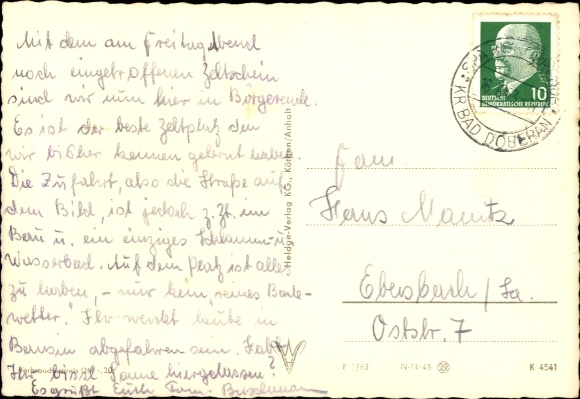 Mit dem am Freitagabend
noch eingetroffenen Zeltschein
sind wir nun hier in Börgerende.
Es ist der beste Zeltplatz den
wir bisher kennen gelernt haben.
Die Zufahrt, also die Straße auf
dem Bild, ist jedoch z. Zt. im
Bau u. ein einziges Schlamm- u.
Wasserbad. Auf dem Platz ist alles
zu haben, - nur kein reines Bade-
wetter. Ihr werdet heute in
Bansin abgefahren sein. Habt
Ihr bissl Sonne hiergelassen?
Es grüßt Euch Fam. Buschmann
Verbraucherpreis DM -,20
Heldge-Verlag KG., Köthen/Anhalt
10
DEUTSCHE
DEMOKRATISCHE REPUBLIK
KR BAD DOBERAN
Fam.
Hans
Ebersbach/Sa.
Oststr. 7
IV-14-45
K 4541